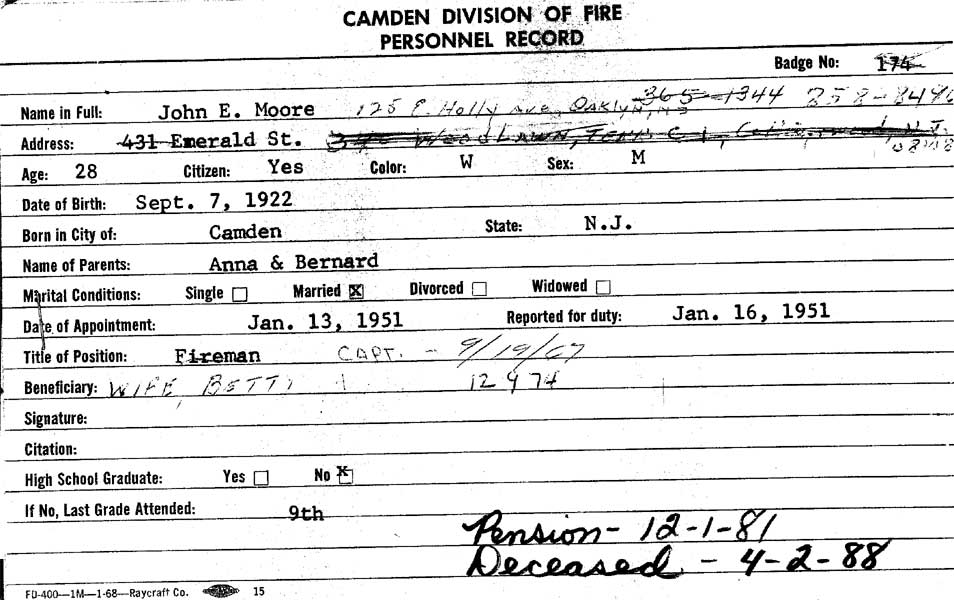 CAMDEN DIVISION OF FIRE
PERSONNEL RECORD
Badge No: 174
Name in Full: John E. Moore 125 E. Holly Ave, Oaklyn, NJ 365-1344 858-8496
Address: 431 Emerald St.
Age: 28 Citizen: Yes Color: W Sex: M
Date of Birth: Sept. 7, 1922
Born in City of: Camden State: N.J.
Name of Parents: Anna & Bernard
Marital Conditions: Single Married X Divorced Widowed
Date of Appointment: Jan. 13, 1951 Reported for duty: Jan. 16, 1951
Title of Position: Fireman CAPT. - 9/19/67
Beneficiary: WIFE, BETTY 12 9 74
Signature:
Citation:
High School Graduate: Yes No X
If No, Last Grade Attended: 9th
Pension- 12-1-81
Deceased - 4-2-88
FD-400—1M—1-68—Raycraft Co. 15